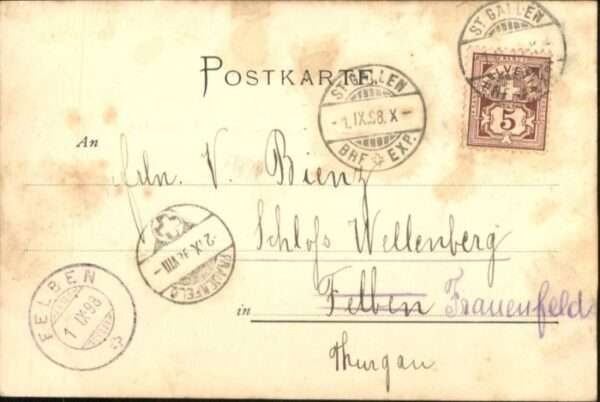 ST GALLEN
POSTKARTE.
ST. GALLEN
- 1. IX. 98. X -
BRF EXP.
HELVETIA
5
An
V. Bienz
Schloss Wellenberg
in Felben Frauenfeld
Thurgau.
FRAUENFELD
FELBEN
1 IX 98